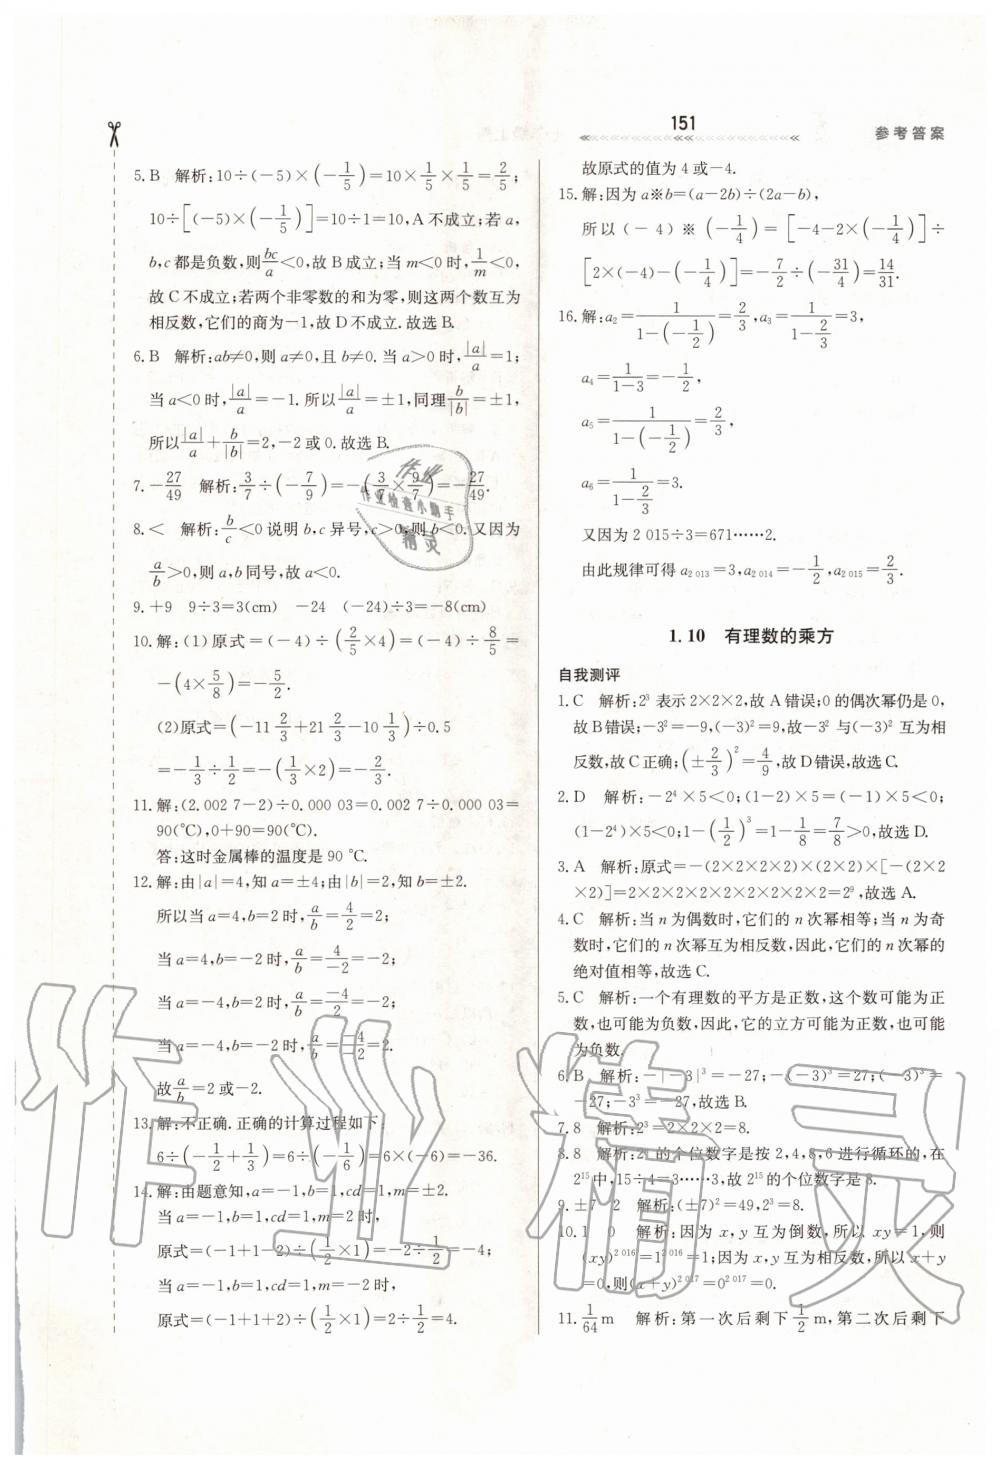 151
参考答案
5.B 解析:10÷(-5)×(-1/5)=10×1/5×1/5=2/5;
10÷[(-5)×(-1/5)]=10÷1=10,A不成立;若a,
b,c都是负数,则bc/a<0,故B成立;当m<0时,1/m<0,
故C不成立;若两个非零数的和为零,则这两个数互为
相反数,它们的商为-1,故D不成立.故选B.
6.B 解析:ab≠0,则a≠0,且b≠0.当a>0时,|a|/a=1;
当a<0时,|a|/a=-1.所以|a|/a=±1,同理b/|b|=±1,
所以|a|/a+b/|b|=2,-2或0.故选B.
7.-27/49 解析:3/7÷(-7/9)=-(3/7×9/7)=-27/49.
8.< 解析:b/c<0说明b,c异号,c>0,则b<0.又因为
a/b>0,则a,b同号,故a<0.
9.+9 9÷3=3(cm) -24 (-24)÷3=-8(cm)
10.解:(1)原式=(-4)÷(2/5×4)=(-4)÷8/5=
-(4×5/8)=-5/2.
(2)原式=(-11 2/3+21 2/3-10 1/3)÷0.5
=-1/3÷1/2=-(1/3×2)=-2/3.
11.解:(2.002 7-2)÷0.000 03=0.002 7÷0.000 03=
90(℃),0+90=90(℃).
答:这时金属棒的温度是90 ℃.
12.解:由|a|=4,知a=±4;由|b|=2,知b=±2.
所以当a=4,b=2时,a/b=4/2=2;
当a=4,b=-2时,a/b=4/-2=-2;
当a=-4,b=2时,a/b=-4/2=-2;
当a=-4,b=-2时,a/b=-4/-2=2.
故a/b=2或-2.
13.解:不正确.正确的计算过程如下:
6÷(-1/2+1/3)=6÷(-1/6)=6×(-6)=-36.
14.解:由题意知,a=-1,b=1,cd=1,m=±2.
当a=-1,b=1,cd=1,m=2时,
原式=(-1+1-2)÷(1/2×1)=-2÷1/2=-4;
当a=-1,b=1,cd=1,m=-2时,
原式=(-1+1+2)÷(1/2×1)=2÷1/2=4.
故原式的值为4或-4.
15.解:因为a※b=(a-2b)÷(2a-b),
所以(-4)※(-1/4)=[-4-2×(-1/4)]÷
[2×(-4)-(-1/4)]=-7/2÷(-31/4)=14/31.
16.解:a2=1/(1-(-1/2))=2/3,a3=1/(1-2/3)=3,
a4=1/(1-3)=-1/2,
a5=1/(1-(-1/2))=2/3,
a6=1/(1-2/3)=3.
又因为2 015÷3=671……2.
由此规律可得a2 013=3,a2 014=-1/2,a2 015=2/3.
1.10 有理数的乘方
自我测评
1.C 解析:2³表示2×2×2,故A错误;0的偶次幂仍是0,
故B错误;-3²=-9,(-3)²=9,故-3²与(-3)²互为相
反数,故C正确;(±2/3)²=4/9,故D错误,故选C.
2.D 解析:-2⁴×5<0;(1-2)×5=(-1)×5<0;
(1-2⁴)×5<0;1-(1/2)³=1-1/8=7/8>0,故选D.
3.A 解析:原式=-(2×2×2×2)×(2×2)×[-(2×2
×2)]=2×2×2×2×2×2×2×2×2=2⁹,故选A.
4.C 解析:当n为偶数时,它们的n次幂相等;当n为奇
数时,它们的n次幂互为相反数,因此,它们的n次幂的
绝对值相等,故选C.
5.C 解析:一个有理数的平方是正数,这个数可能为正
数,也可能为负数,因此,它的立方可能为正数,也可能
为负数.
6.B 解析:-|-3|³=-27;-(-3)³=27;(-3)³=
-27;-3³=-27,故选B.
7.8 解析:2³=2×2×2=8.
8.8 解析:2ⁿ的个位数字是按2,4,8,6进行循环的,在
2¹⁵中,15÷4=3……3,故2¹⁵的个位数字是8.
9.±7 2 解析:(±7)²=49,2³=8.
10.1 0 解析:因为x,y互为倒数,所以xy=1,则
(xy)²⁰¹⁶=1²⁰¹⁶=1;因为x,y互为相反数,所以x+y
=0,则(x+y)²⁰¹⁷=0²⁰¹⁷=0.
11.1/64 m 解析:第一次后剩下1/2 m,第二次后剩下
作业
作业检查小助手
精灵
作业精灵